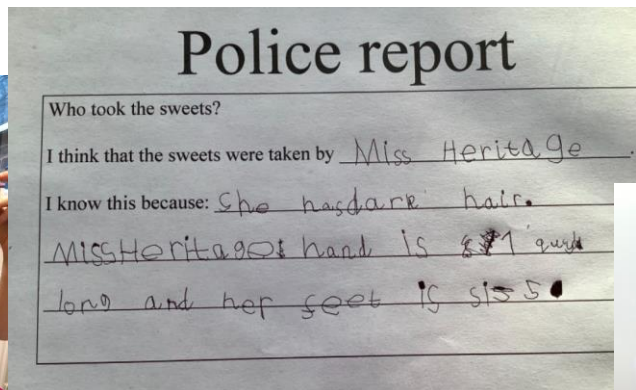 Police report
Who took the sweets?
I think that the sweets were taken by Miss Heritage.
I know this because: She hasdark hair.
MissHeritages hand is
long and her feet is